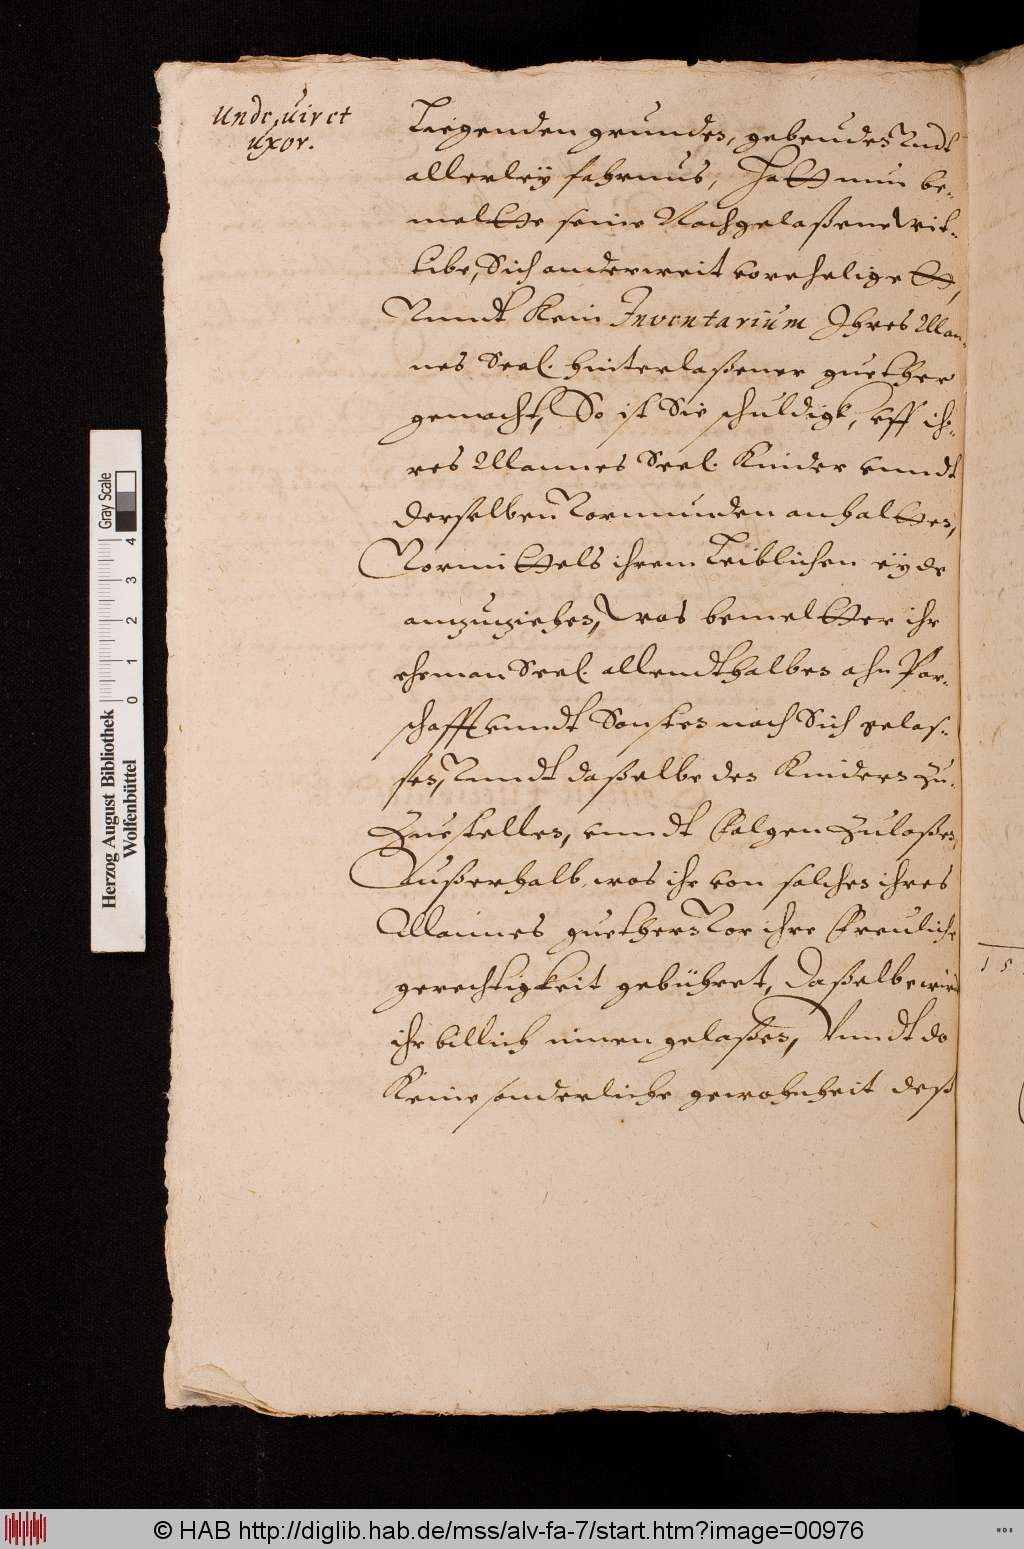 Unde uir et
uxor.
Liegenden grundes, gebeudes Undt
allerley fahrnus, Hatt nun be-
meltte seine Nachgelaßene wit-
tibe, Sich anderweit voreheligett,
Unndt Kein Inventarium Ihres Man-
nes Seel. hinterlaßener guether
gemacht, So ist Sie schuldigk, uff ih-
res Mannes Seel. Kinder unndt
derselben Vormunden anhalttes,
Vormittels ihrem Leiblichen eyde
anzuziehen, was bemeltter ihr
eheman Seel. allendthalben ahn Par-
schafft unndt Sonsten nach Sich gelas-
sen, Unndt daßelbe den Kindern zu-
Zustellen, unndt folgen Zulaßen,
Außerhalb, was ihr von solchen ihres
Mannes guethern Vor ihre freuliche
gerechtigkeit gebühret, Daßelbe wird
ihr billich innen gelaßen, Unndt do
Keine sonderliche gewohnheit deß
15
Gray Scale
0 1 2 3 4
Herzog August Bibliothek
Wolfenbüttel
© HAB http://diglib.hab.de/mss/alv-fa-7/start.htm?image=00976